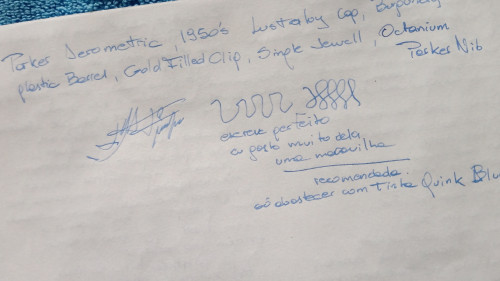 Parker Aerometric, 1950's Lustraloy Cap, Burgundy
plastic Barrel, Gold Filled Clip, Single Jewell, Octanium
Parker Nib
escreve perfeito
eu gosto muito dela,
uma maravilha
recomendada.
só abastecer com Tinta Quink Blu